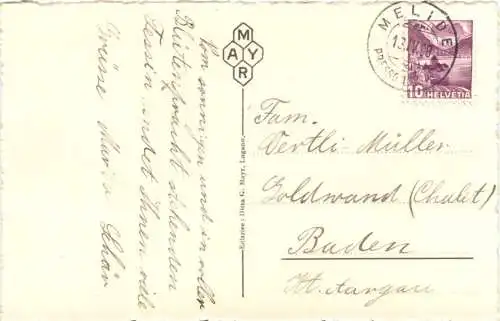 Vom sonnigen und in voller
Blütenpracht stehenden
Tessin sendet Ihnen viele
Grüsse Maria Schär
MAYR
Editrice: Ditta G. Mayr, Lugano.
MELIDE
13.IV.
10 HELVETIA
Fam.
Oertli-Müller
Goldwand (Chalet)
Baden
Kt. Aargau